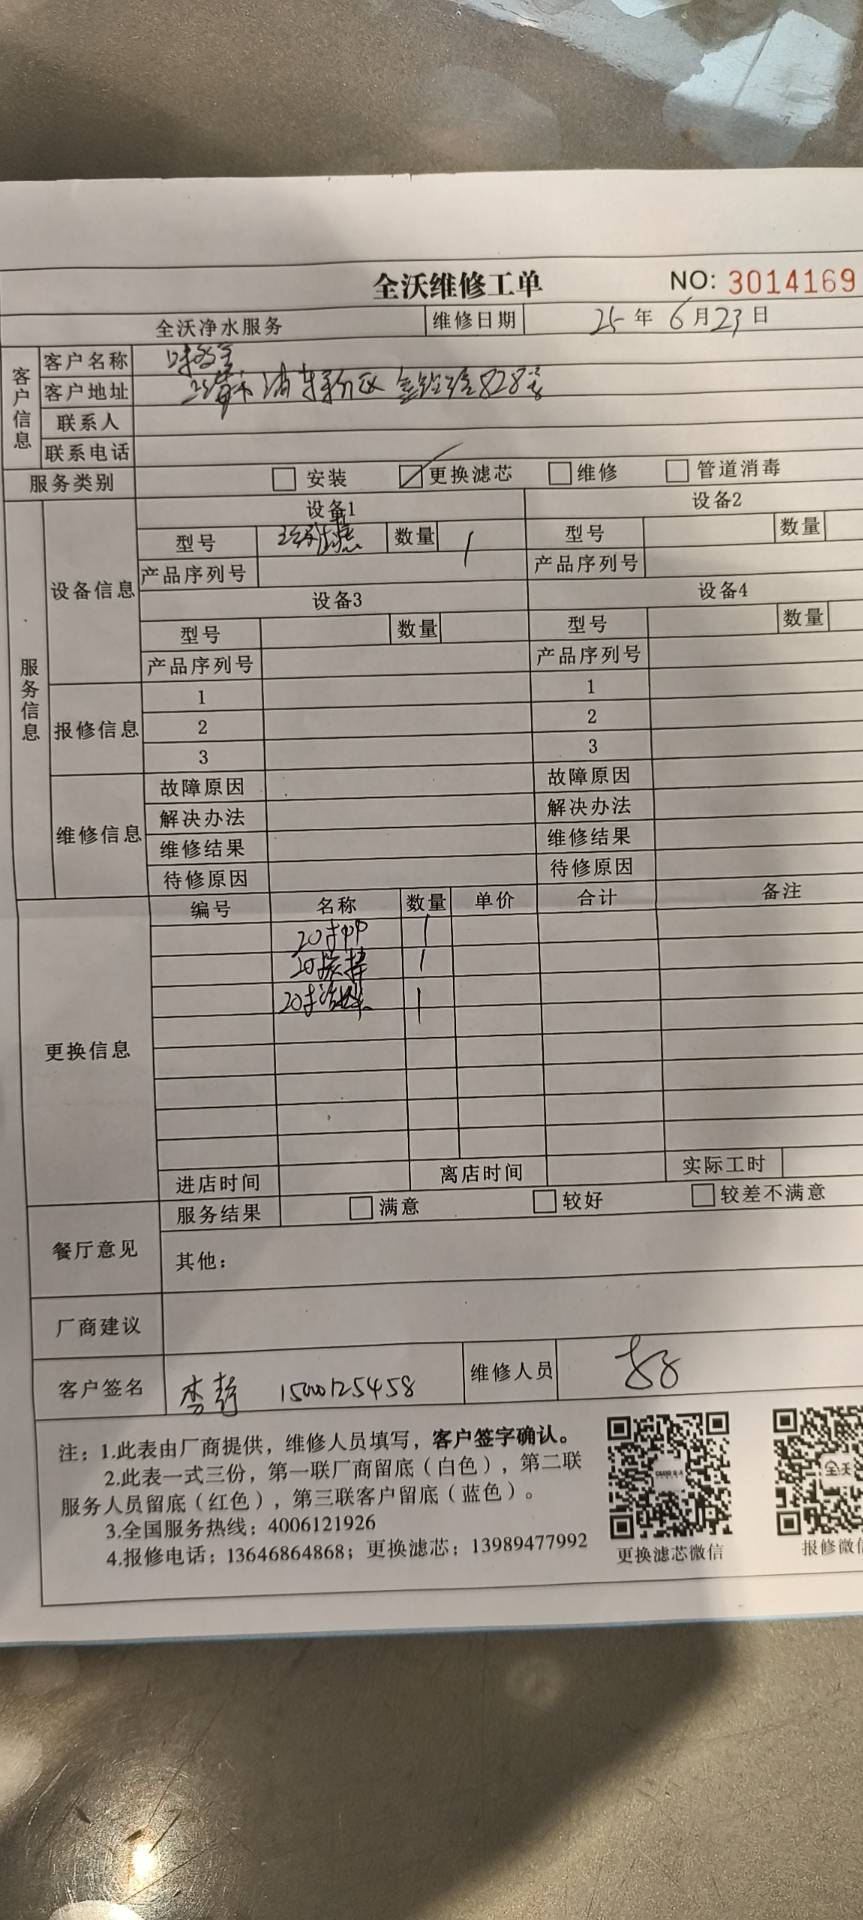 全沃维修工单 NO: 3014169
全沃净水服务 维修日期 25年6月23日
客户信息
客户名称
客户地址 上海市浦东新区 828号
联系人
联系电话
服务类别 安装 更换滤芯 维修 管道消毒
服务信息
设备信息
设备1 设备2
型号 数量 1 型号 数量
产品序列号 产品序列号
设备3 设备4
型号 数量 型号 数量
产品序列号 产品序列号
报修信息
1 1
2 2
3 3
维修信息
故障原因 故障原因
解决办法 解决办法
维修结果 维修结果
待修原因 待修原因
更换信息
编号 名称 数量 单价 合计 备注
20寸PP 1
20 1
20寸 1
进店时间 离店时间 实际工时
餐厅意见
服务结果 满意 较好 较差不满意
其他：
厂商建议
客户签名 15000125458 维修人员
注：1.此表由厂商提供，维修人员填写，客户签字确认。
2.此表一式三份，第一联厂商留底（白色），第二联
服务人员留底（红色），第三联客户留底（蓝色）。
3.全国服务热线：4006121926
4.报修电话：13646864868；更换滤芯：13989477992
更换滤芯微信 报修微信
全沃